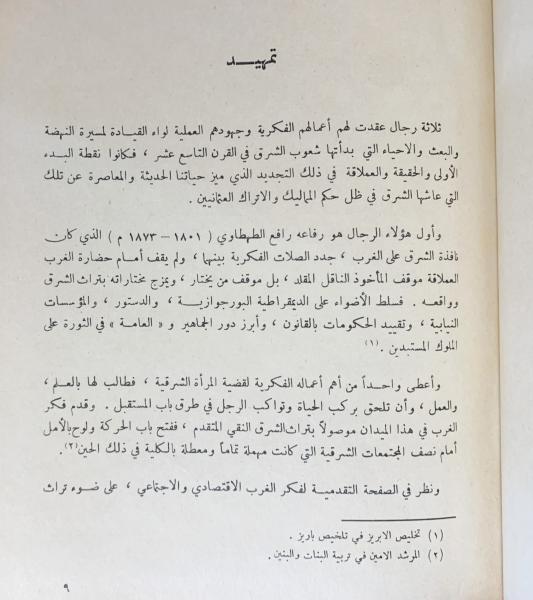 تمهيـــد
ثلاثة رجال عقدت لهم أعمالهم الفكرية وجهودهم العملية لواء القيادة لمسيرة النهضة
والبعث والاحياء التي بدأتها شعوب الشرق في القرن التاسع عشر ، فكانوا نقطة البدء
الأولى والحقيقة والعملاقة في ذلك التجديد الذي ميز حياتنا الحديثة والمعاصرة عن تلك
التي عاشها الشرق في ظل حكم المماليك والاتراك العثمانيين .
وأول هؤلاء الرجال هو رفاعه رافع الطهطاوي ( ١٨٠١ – ١٨٧٣ م ) الذي كان
نافذة الشرق على الغرب ، جدد الصلات الفكرية بينهما ، ولم يقف أمام حضارة الغرب
العملاقة موقف المأخوذ الناقل المقلد ، بل موقف من يختار ، ويمزج مختاراته بتراث الشرق
وواقعه . فسلط الأضواء على الديمقراطية البورجوازية ، والدستور ، والمؤسسات
النيابية ، وتقييد الحكومات بالقانون ، وأبرز دور الجماهير و « العامة » في الثورة على
الملوك المستبدين . (١)
وأعطى واحداً من أهم أعماله الفكرية لقضية المرأة الشرقية ، فطالب لها بالعلم ،
والعمل ، وأن تلحق بركب الحياة وتواكب الرجل في طرق باب المستقبل . وقدم فكر
الغرب في هذا الميدان موصولاً بتراث الشرق النقي المتقدم ، ففتح باب الحركة ولوح بالأمل
أمام نصف المجتمعات الشرقية التي كانت مهملة تماماً ومعطلة بالكلية في ذلك الحين (٢) .
ونظر في الصفحة التقدمية لفكر الغرب الاقتصادي والاجتماعي ، على ضوء تراث
(١) تخليص الابريز في تلخيص باريز .
(٢) المرشد الامين في تربية البنات والبنين .
٩